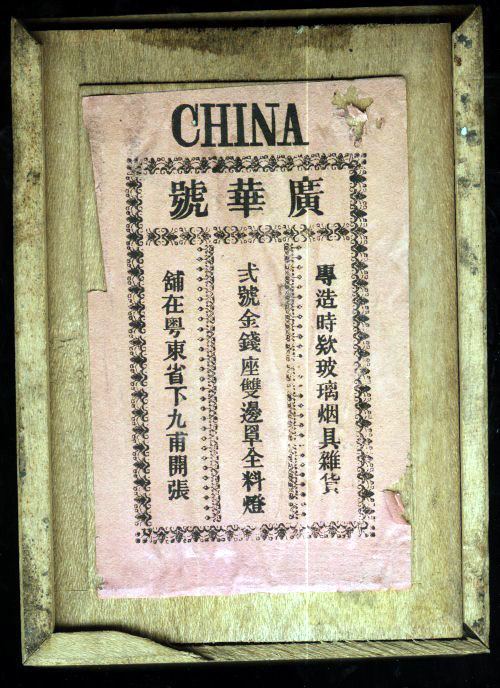 CHINA
廣華號
專造時欵玻璃烟具雜貨
弍號金錢座雙邊罩全料燈
舖在粤東省下九甫開張